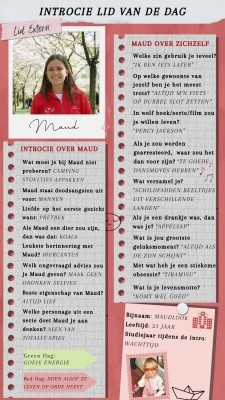 INTROCIE LID VAN DE DAG
Lid Extern
Maud
INTROCIE OVER MAUD
Wat moet je bij Maud niet
proberen? CAMPING
STOELTJES AFPAKKEN
Maud staat doodsangsten uit
voor: MANNEN
Liefde op het eerste gezicht
want: PRETBEK
Als Maud een dier zou zijn,
dan was dat: KOALA
Leukste herinnering met
Maud? MERCANTUS
Welk ongevraagd advies zou
je Maud geven? MAAK GEEN
DRONKEN SELFIES
Beste eigenschap van Maud?
ALTIJD LIEF
Welke personage uit een
serie doet Maud je aan
denken? ALEX VAN
TOTALLY SPIES
Green flag:
GOEIE ENERGIE
Red flag: DOEN ALSOF ZE
LEVEN OP ORDE HEEFT
MAUD OVER ZICHZELF
Welke zin gebruik je teveel?
"IK BEN IETS LATER"
Op welke gewoonte van
jezelf ben je het meest
trots? "ALTIJD M'N FIETS
OP DUBBEL SLOT ZETTEN"
In welf boek/serie/film zou
je willen leven?
"PERCY JACKSON"
Als je zou worden
gearresteerd, waar zou het
dan voor zijn? "TE GOEDE
DANSMOVES HEBBEN"
Wat verzamel je?
"SCHILDPADDEN BEELDTJES
UIT VERSCHILLENDE
LANDEN"
Als je een drankje was, dan
was je? "APPELSAP"
Wat is jou grootste
geluksmoment? "ALTIJD ALS
DE ZON SCHIJNT"
Met wat heb je een stiekeme
obsessie? "TIRAMISU"
Wat is je levensmotto?
"KOMT WEL GOED"
Bijnaam: MAUDLOOK
Leeftijd: 21 JAAR
Studiejaar tijdens de intro:
WACHTTIJD